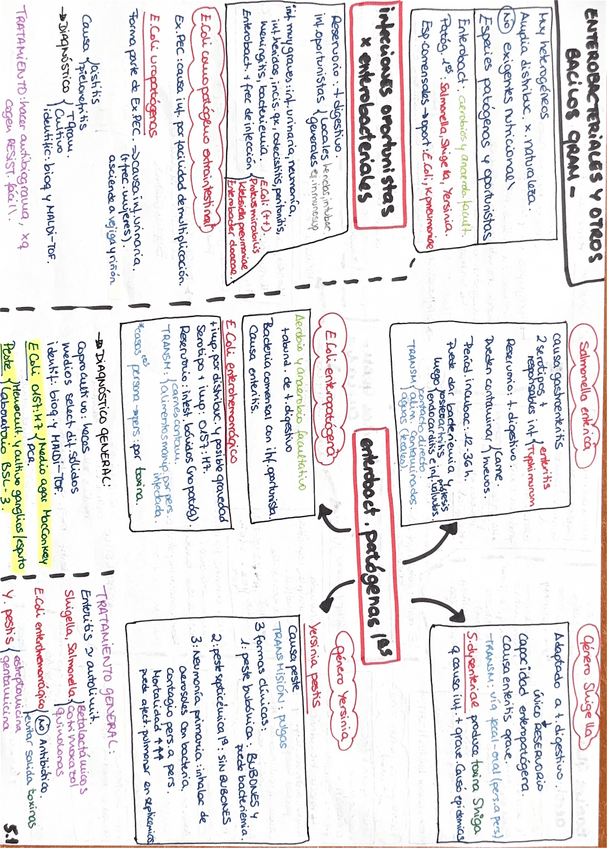 ENTEROBACTERIALES Y OTROS
BACILOS GRAM -
Muy heterogéneos
Amplia distribuc. x naturaleza.
NO exigentes nutricional
Especies patógenas y oportunistas
Enterobact: aerobios y anaerobi. facult.
Patóg. 1ª: Salmonella, Shigella, Yersinia.
Esp. comensales → oport: E.Coli, K. pneumoniae
infecciones oportunistas
x enterobacteriales
Reservorio: t. digestivo.
inf. oportunistas
Locales
generales
inf. muy graves: inf. urinaria, neumonía,
peritonitis,
meningitis, bacteriemia.
Enterobact + frec de infección
E.Coli (++).
Proteus mirabilis
Klebsiella pneumoniae
Enterobacter cloacae.
E.Coli como patógeno extraintestinal
Ex. PEC: causa inf. por facilidad de multiplicación.
E.Coli uropatógenos
Forma parte de Ex. PEC. → causa inf. urinaria.
(+ frec. mujeres).
asciende a vejiga y riñón
Causa
cistitis
pielonefritis
→ DIAGNÓSTICO
Cultivo
identific: bioq y MALDI-TOF.
TRATAMIENTO: hacer antibiograma, xq
cogen RESIST. fácil.
Salmonella entérica
causa gastroenteritis
2 serotipos +
responsables inf
enteritis
Typhimurium
Reservorio: t. digestivo.
Pueden contaminar
carne.
huevos.
Period. incubac: 12-36h.
Puede dar bacteriemia y
luego
TRANSM
contacto directo
alim. contaminados
aguas (fecales)
enterobact. patógenas 1ªs
E.Coli enteropatógena
Aerobio y anaerobio facultativo
+ abund. de t. digestivo
Bacteria comensal con inf. oportunista
Causa enteritis.
E.Coli enterohemorrágico
+ imp. por distribuc. y posible gravedad
Serotipo + imp: O157:H7.
Reservorio: intest. bóvidos (no patóg).
TRANSM:
carne contam.
alimentos manip. por pers.
infectada.
persona → pers. por toxina.
→ DIAGNÓSTICO GENERAL:
Coprocultivo: heces
medios select dif. sólidos
identif. bioq y MALDI-TOF.
E.Coli O157:H7
medio agar MacConkey
PCR.
Peste
Hemocult y cultivo ganglios/esputo
Laboratorio BSL-3.
Género Shigella
Adaptado a t. digestivo.
único RESERVORIO
Capacidad enteropatógena.
causa enteritis grave.
TRANSM: vía fecal-oral (pers. a pers)
S. dysenteriae produce toxina Shiga
q causa inf. + grave. Causa epidemias
Género Yersinia
Yersinia pestis
Causa peste
TRANSMISIÓN: pulgas
3 formas clínicas:
1: peste bubónica: BUBONES y
puede bacteriemia.
2: peste septicémica 1ª: sin BUBONES
3: Neumonía primaria: inhalac de
aerosoles con bacteria
contagio pers. a pers.
Mortalidad ↑↑↑
puede afect. pulmonar en septicémicas
TRATAMIENTO GENERAL:
Enteritis → autolimit.
Shigella, Salmonella
Betalactámicos
Cotrimoxazol
quinolonas
E.Coli enterohemorrágico
NO Antibiotico
evitar salida toxinas
Y. pestis
estreptomicina
gentamicina
5.1